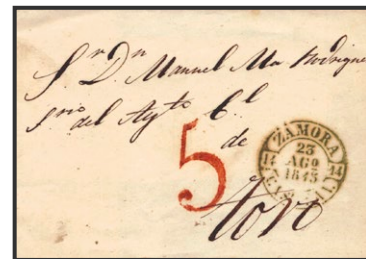 Sr Dn Manuel Ma Rodriguez
Srio del Ayto Cl
de
Toro
5
ZAMORA
23
AGO
1845